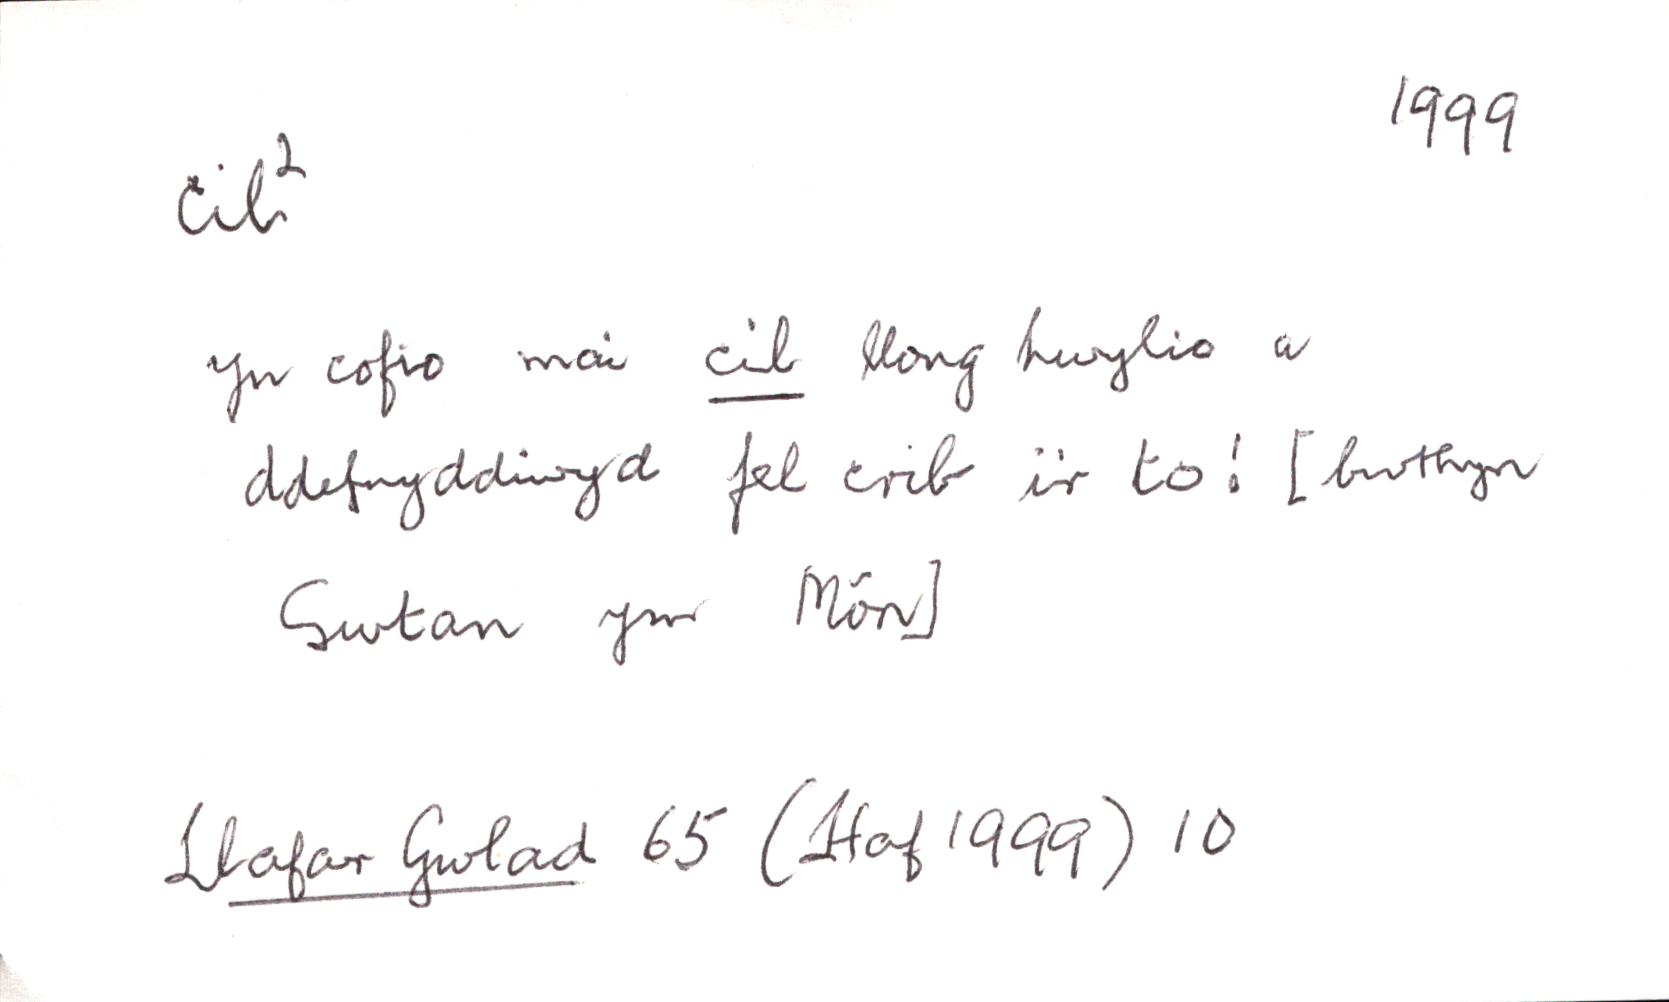 1999
cil²
yn cofio mai cil llong hwylio a
ddefnyddiwyd fel crib i'r to! [bwthyn
Swtan ym Môn]
Llafar Gwlad 65 (Haf 1999) 10